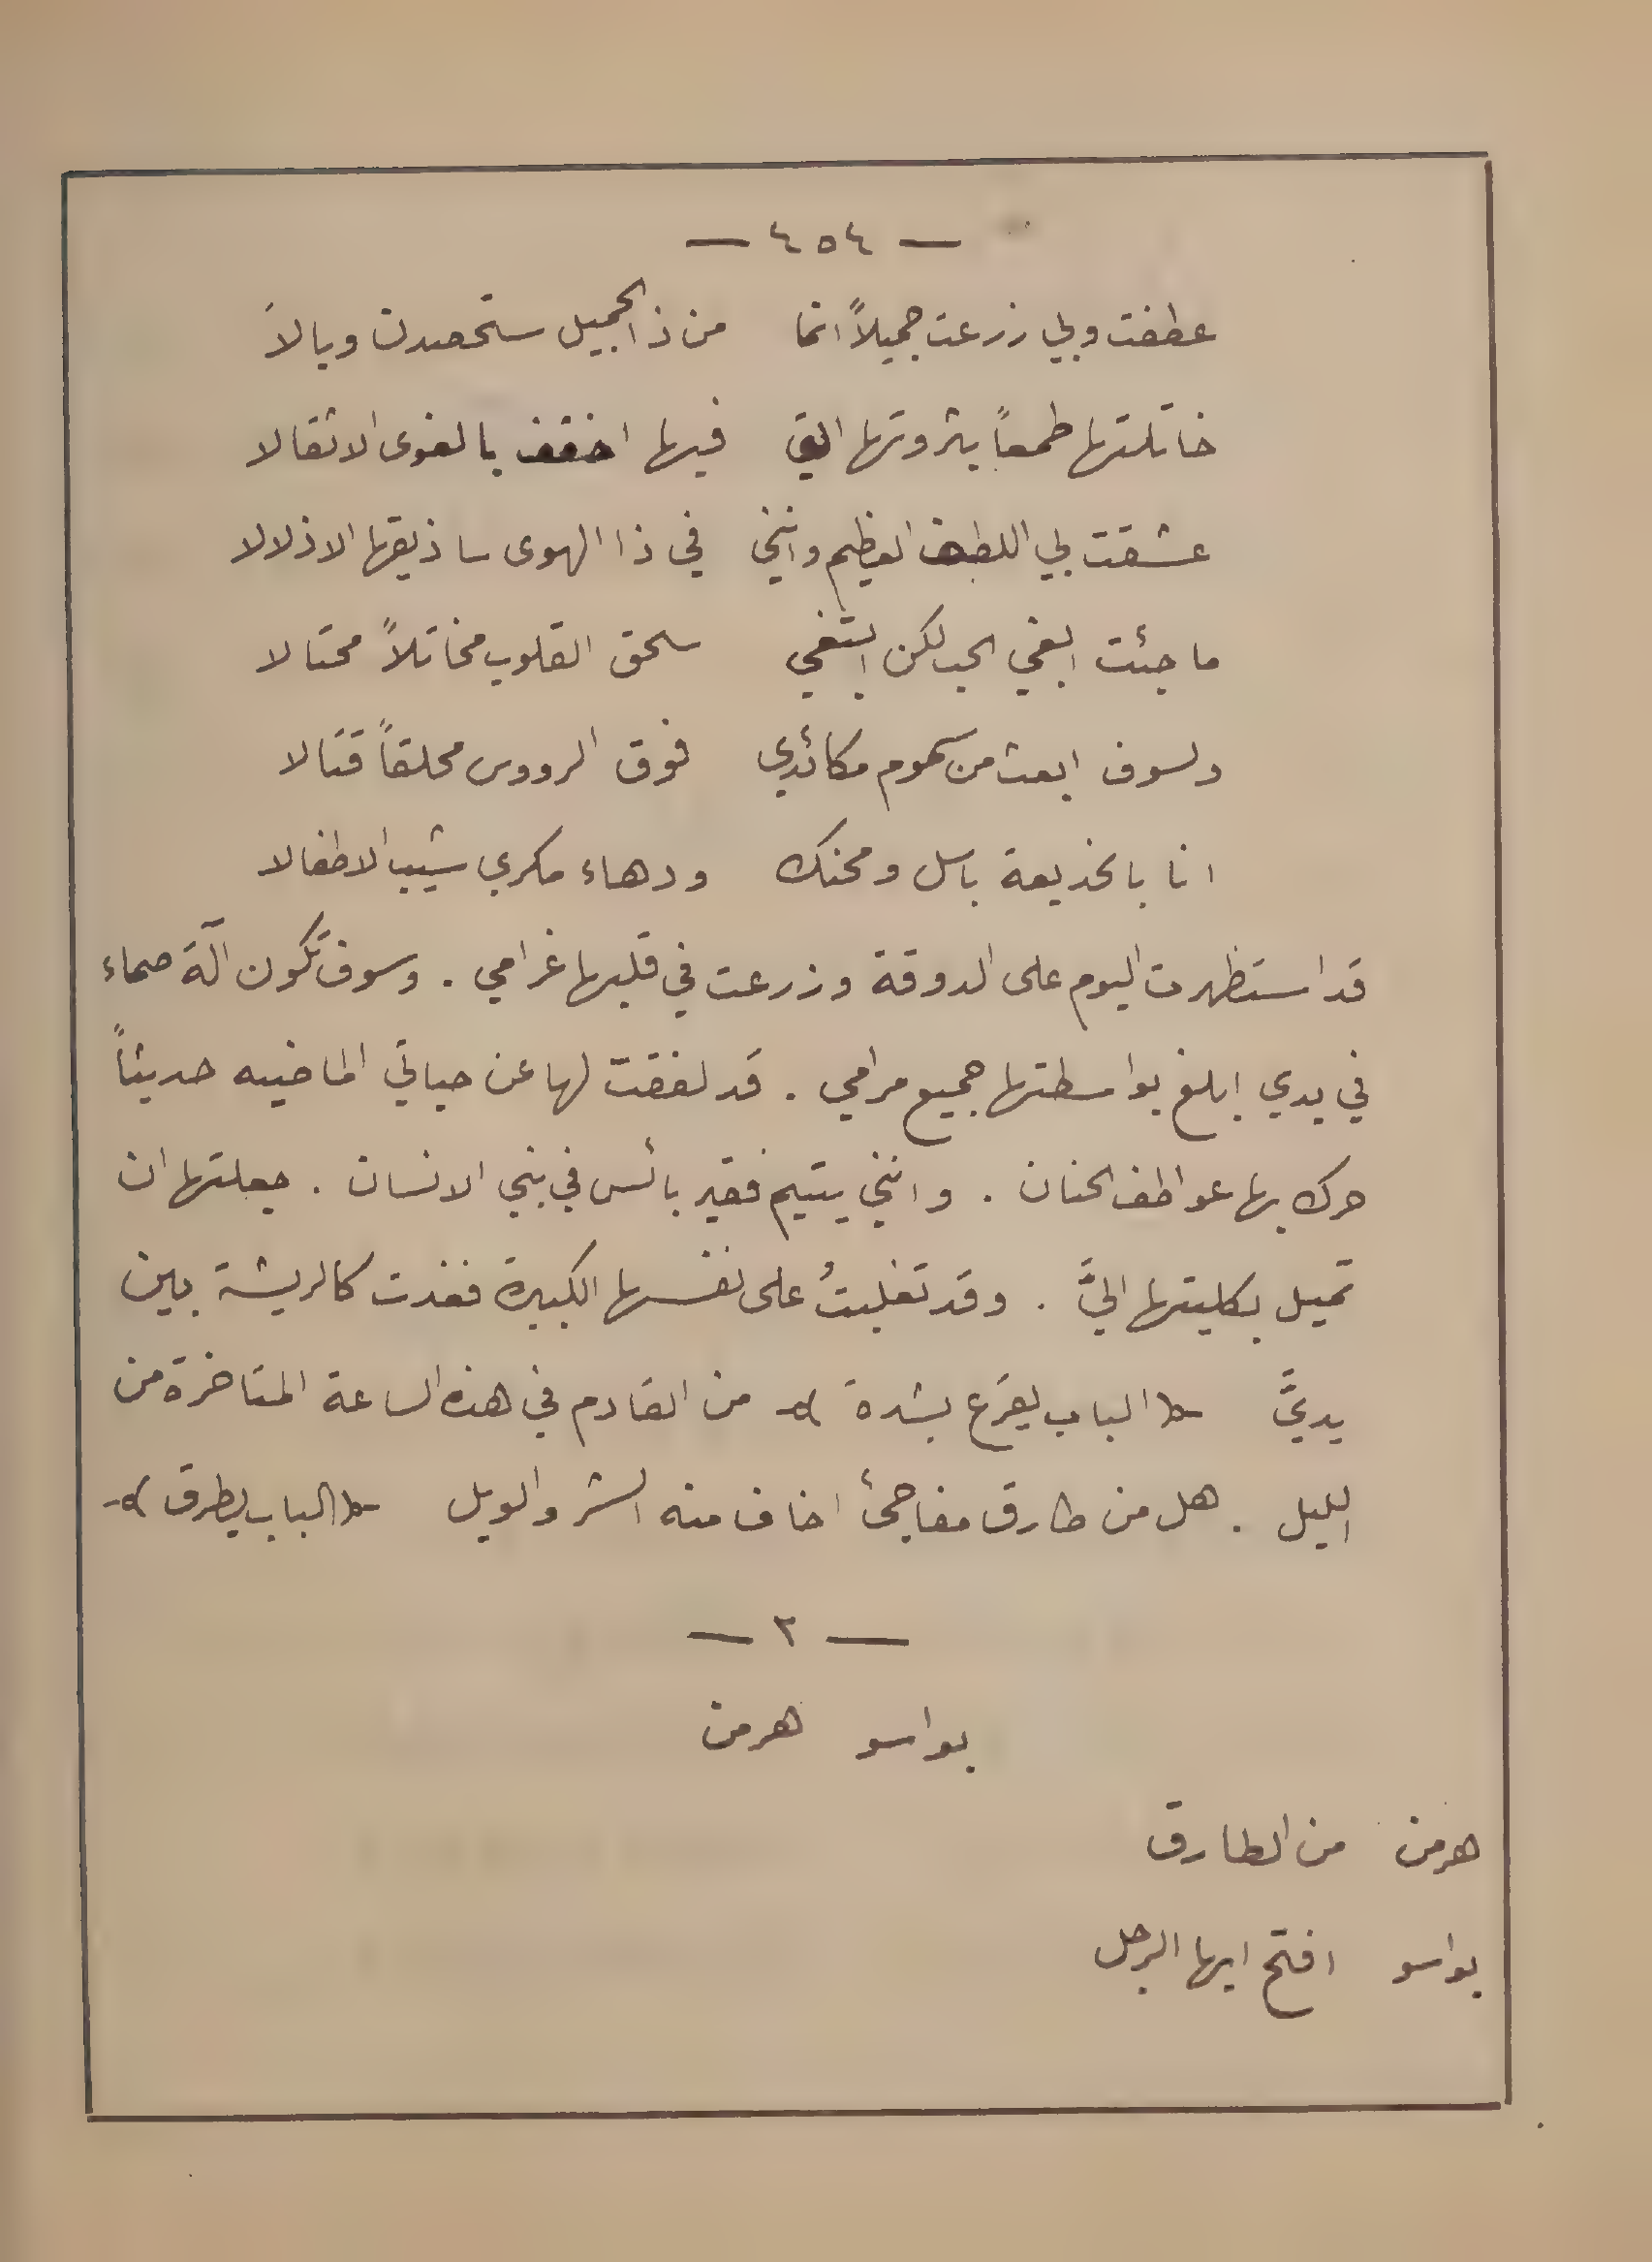 — ٤٥٤ —
عطفت وبي زرعت جميلاً انما من ذا الجميل ستحصدن وبالاَ
خاتلتها طمعاً بثروتها التي فيها اخفف بالغوى الاثقالا
عشقت بي اللطف العظيم وانني في ذا الهوى ساذيقها الاذلالا
ما جئت ابغي الحب لكن ابتغي سحق القلوب مخاتلاً محتالا
ولسوف ابعث من سموم مكائدي فوق الرووس محلقاً قتالا
انا بالخديعة باسل ومحنك ودهاء مكري شيب الاطفالا
قد استظهرت اليوم على الدوقة وزرعت في قلبها غرامي . وسوف تكون آلة صماء
في يدي ابلغ بواسطتها جميع مرامي . قد لفقت لها عن حياتي الماضيه حديثاً
حرك بها عواطف الحنان . وانني يتيم فقير بائس في بني الانسان . جعلتها ان
تميل بكليتها اليَّ . وقد تغلبتُ على نفسها الكبيرة فغدت كالريشة بين
يديَّ (الباب يقرع بشدة) من القادم في هذه الساعة المتاخرة من
الليل . هل من طارق مفاجئ اخاف منه الشر والويل (الباب يطرق)
— ٢ —
بواسو هرمن
هرمن من الطارق
بواسو افتح ايها الرجل